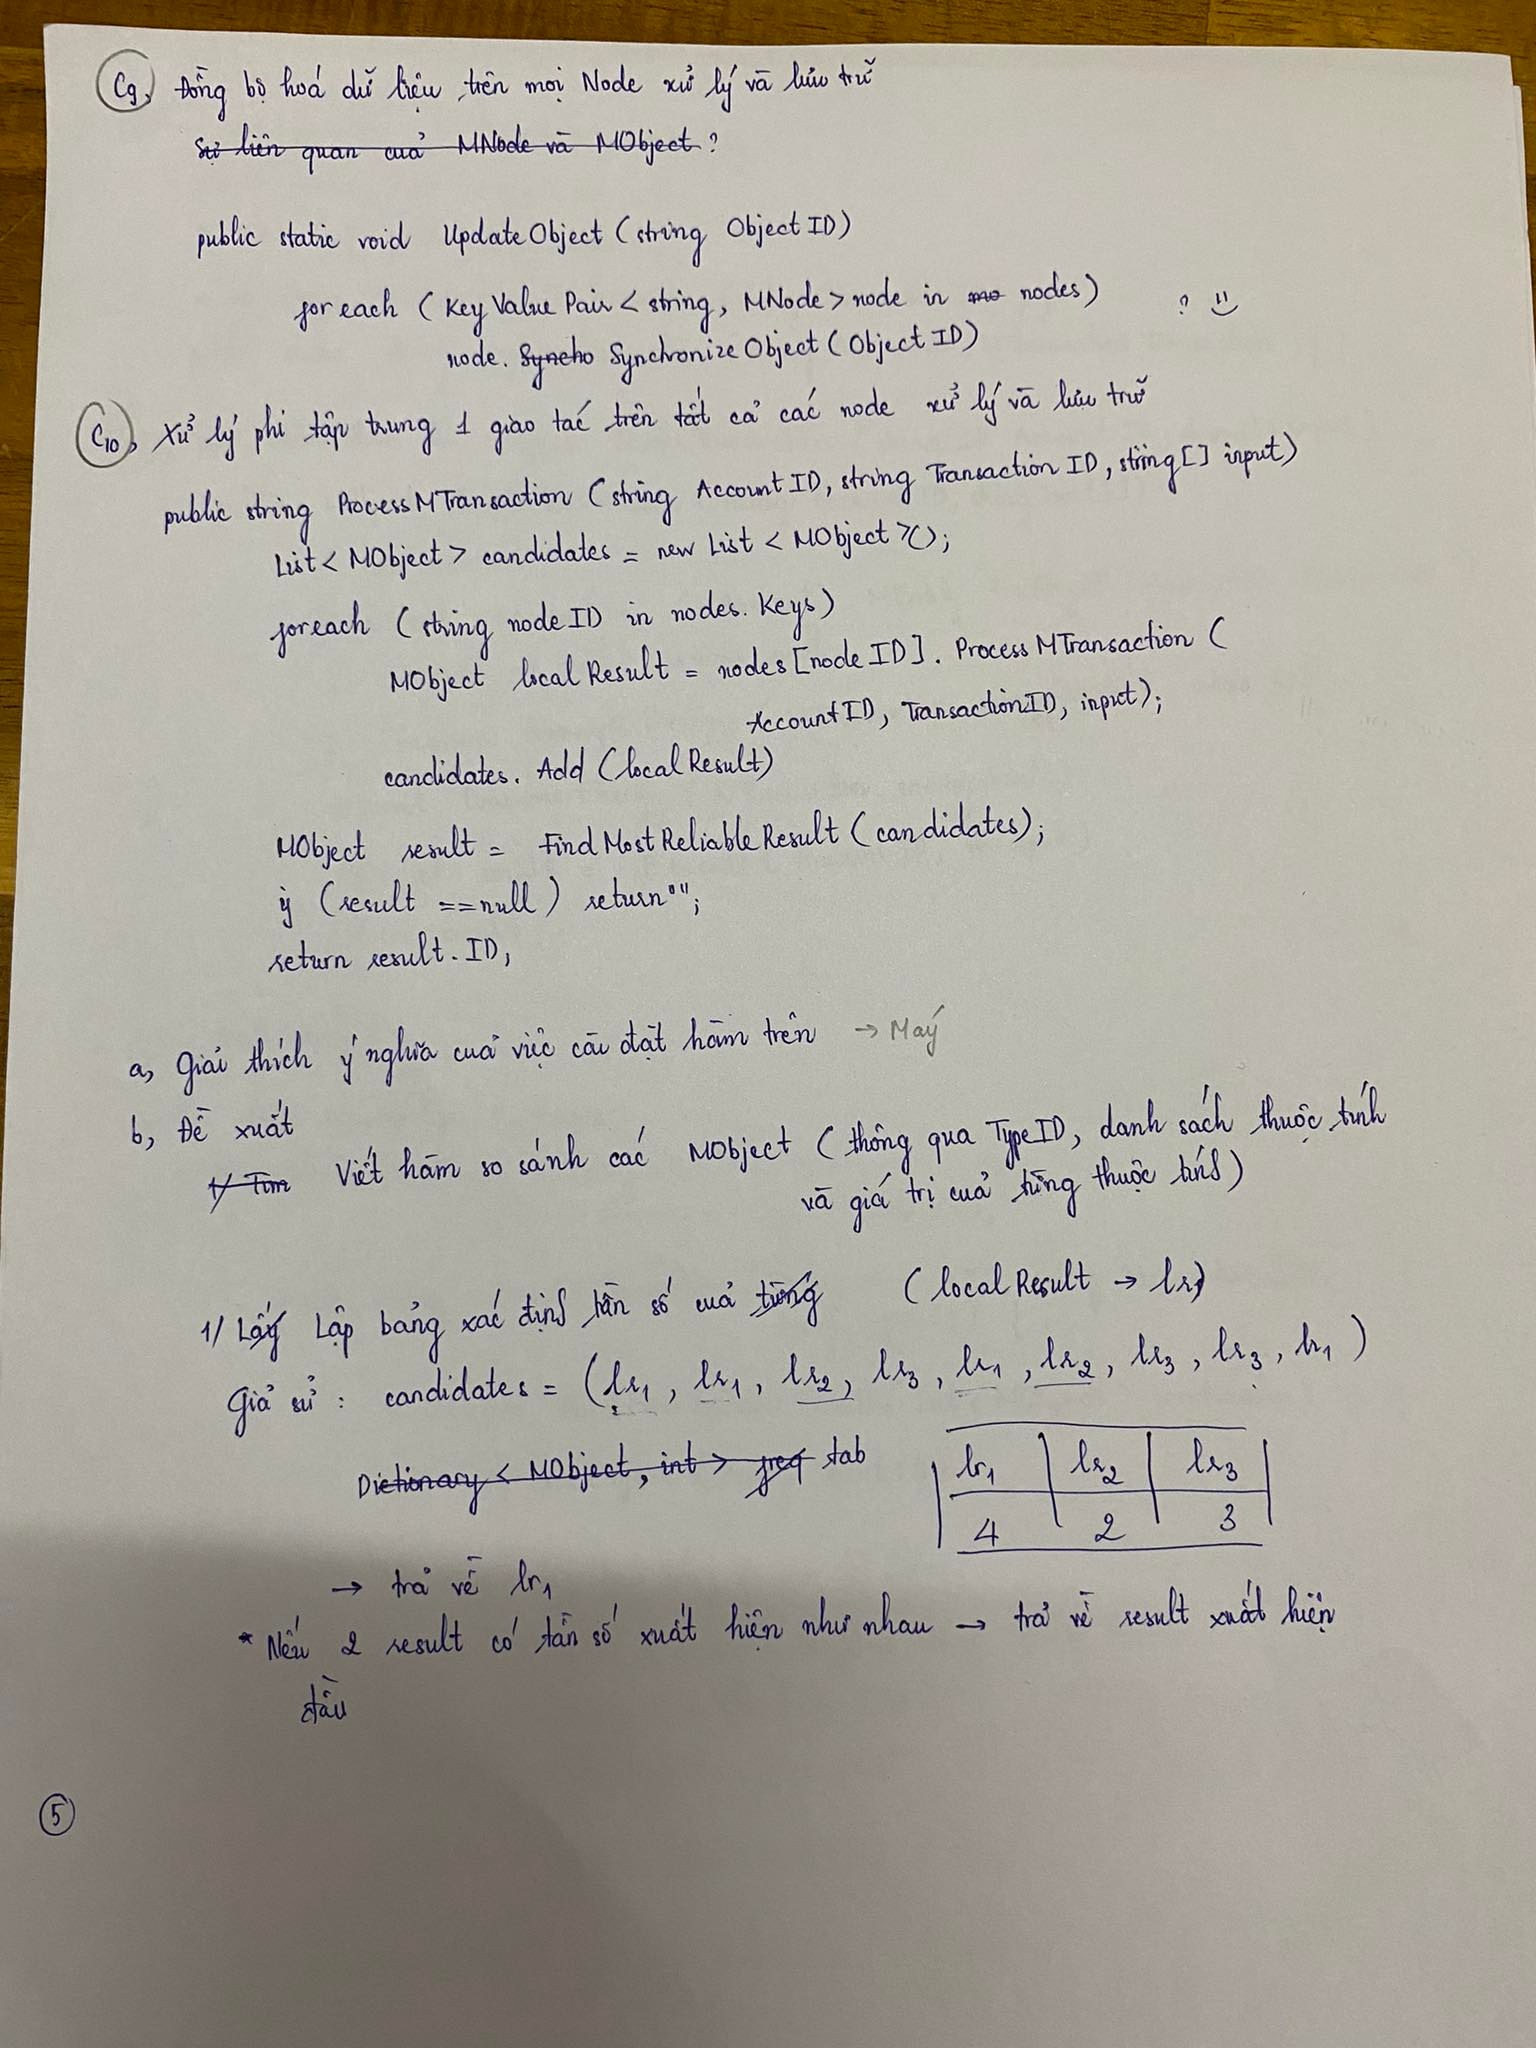 C9, Đồng bộ hoá dữ liệu trên mọi Node xử lý và lưu trữ
Sự liên quan cuả MNode và MObject?
public static void UpdateObject (string ObjectID)
foreach (KeyValuePair < string, MNode > node in mo nodes) ?
node. Syncho SynchronizeObject (ObjectID)
C10, Xử lý phi tập trung 1 giao tác trên tất cả các node xử lý và lưu trữ
public string ProcessMTransaction (string AccountID, string TransactionID, string[] input)
List < MObject > candidates = new List < MObject >();
foreach (string nodeID in nodes. Keys)
MObject localResult = nodes [nodeID]. ProcessMTransaction (
AccountID, TransactionID, input);
candidates. Add (localResult)
MObject result = FindMostReliableResult (candidates);
if (result == null) return "";
return result. ID;
a, Giải thích ý nghĩa cuả việc cài đặt hàm trên → Máy
b, Đề xuất
1/ Tìm Viết hàm so sánh các MObject (thông qua TypeID, danh sách thuộc tính
và giá trị cuả từng thuộc tính)
1/ Lấy Lập bảng xác định tần số cuả từng (localResult → lr)
Giả sử : candidates = (lr1, lr1, lr2, lr3, lr1, lr2, lr3, lr3, lr1)
Dictionary < MObject, int > freq tab
lr1 lr2 lr3
4 2 3
→ trả về lr1
* Nếu 2 result có tần số xuất hiện như nhau → trả về result xuất hiện
đầu
5